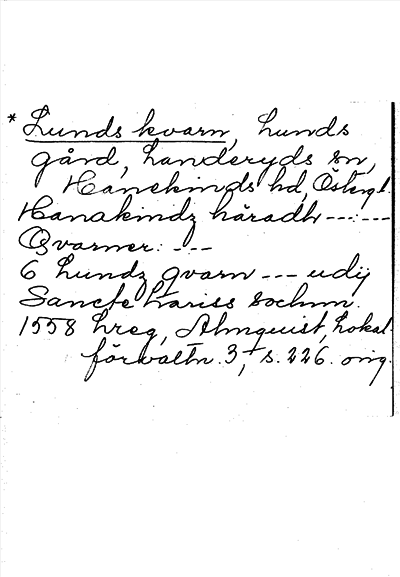 * Lunds kvarn, Lunds
gård, Landeryds sn,
Hanekinds hd, Östergl.
Hanakindz häradh --- : ---
Qvarner: ---
6 Lundz qvarn --- udij
Sancte Lariss sochnn.
1558 Lreg, Almquist, Lokal
förvaltn. 3, s. 226. orig.